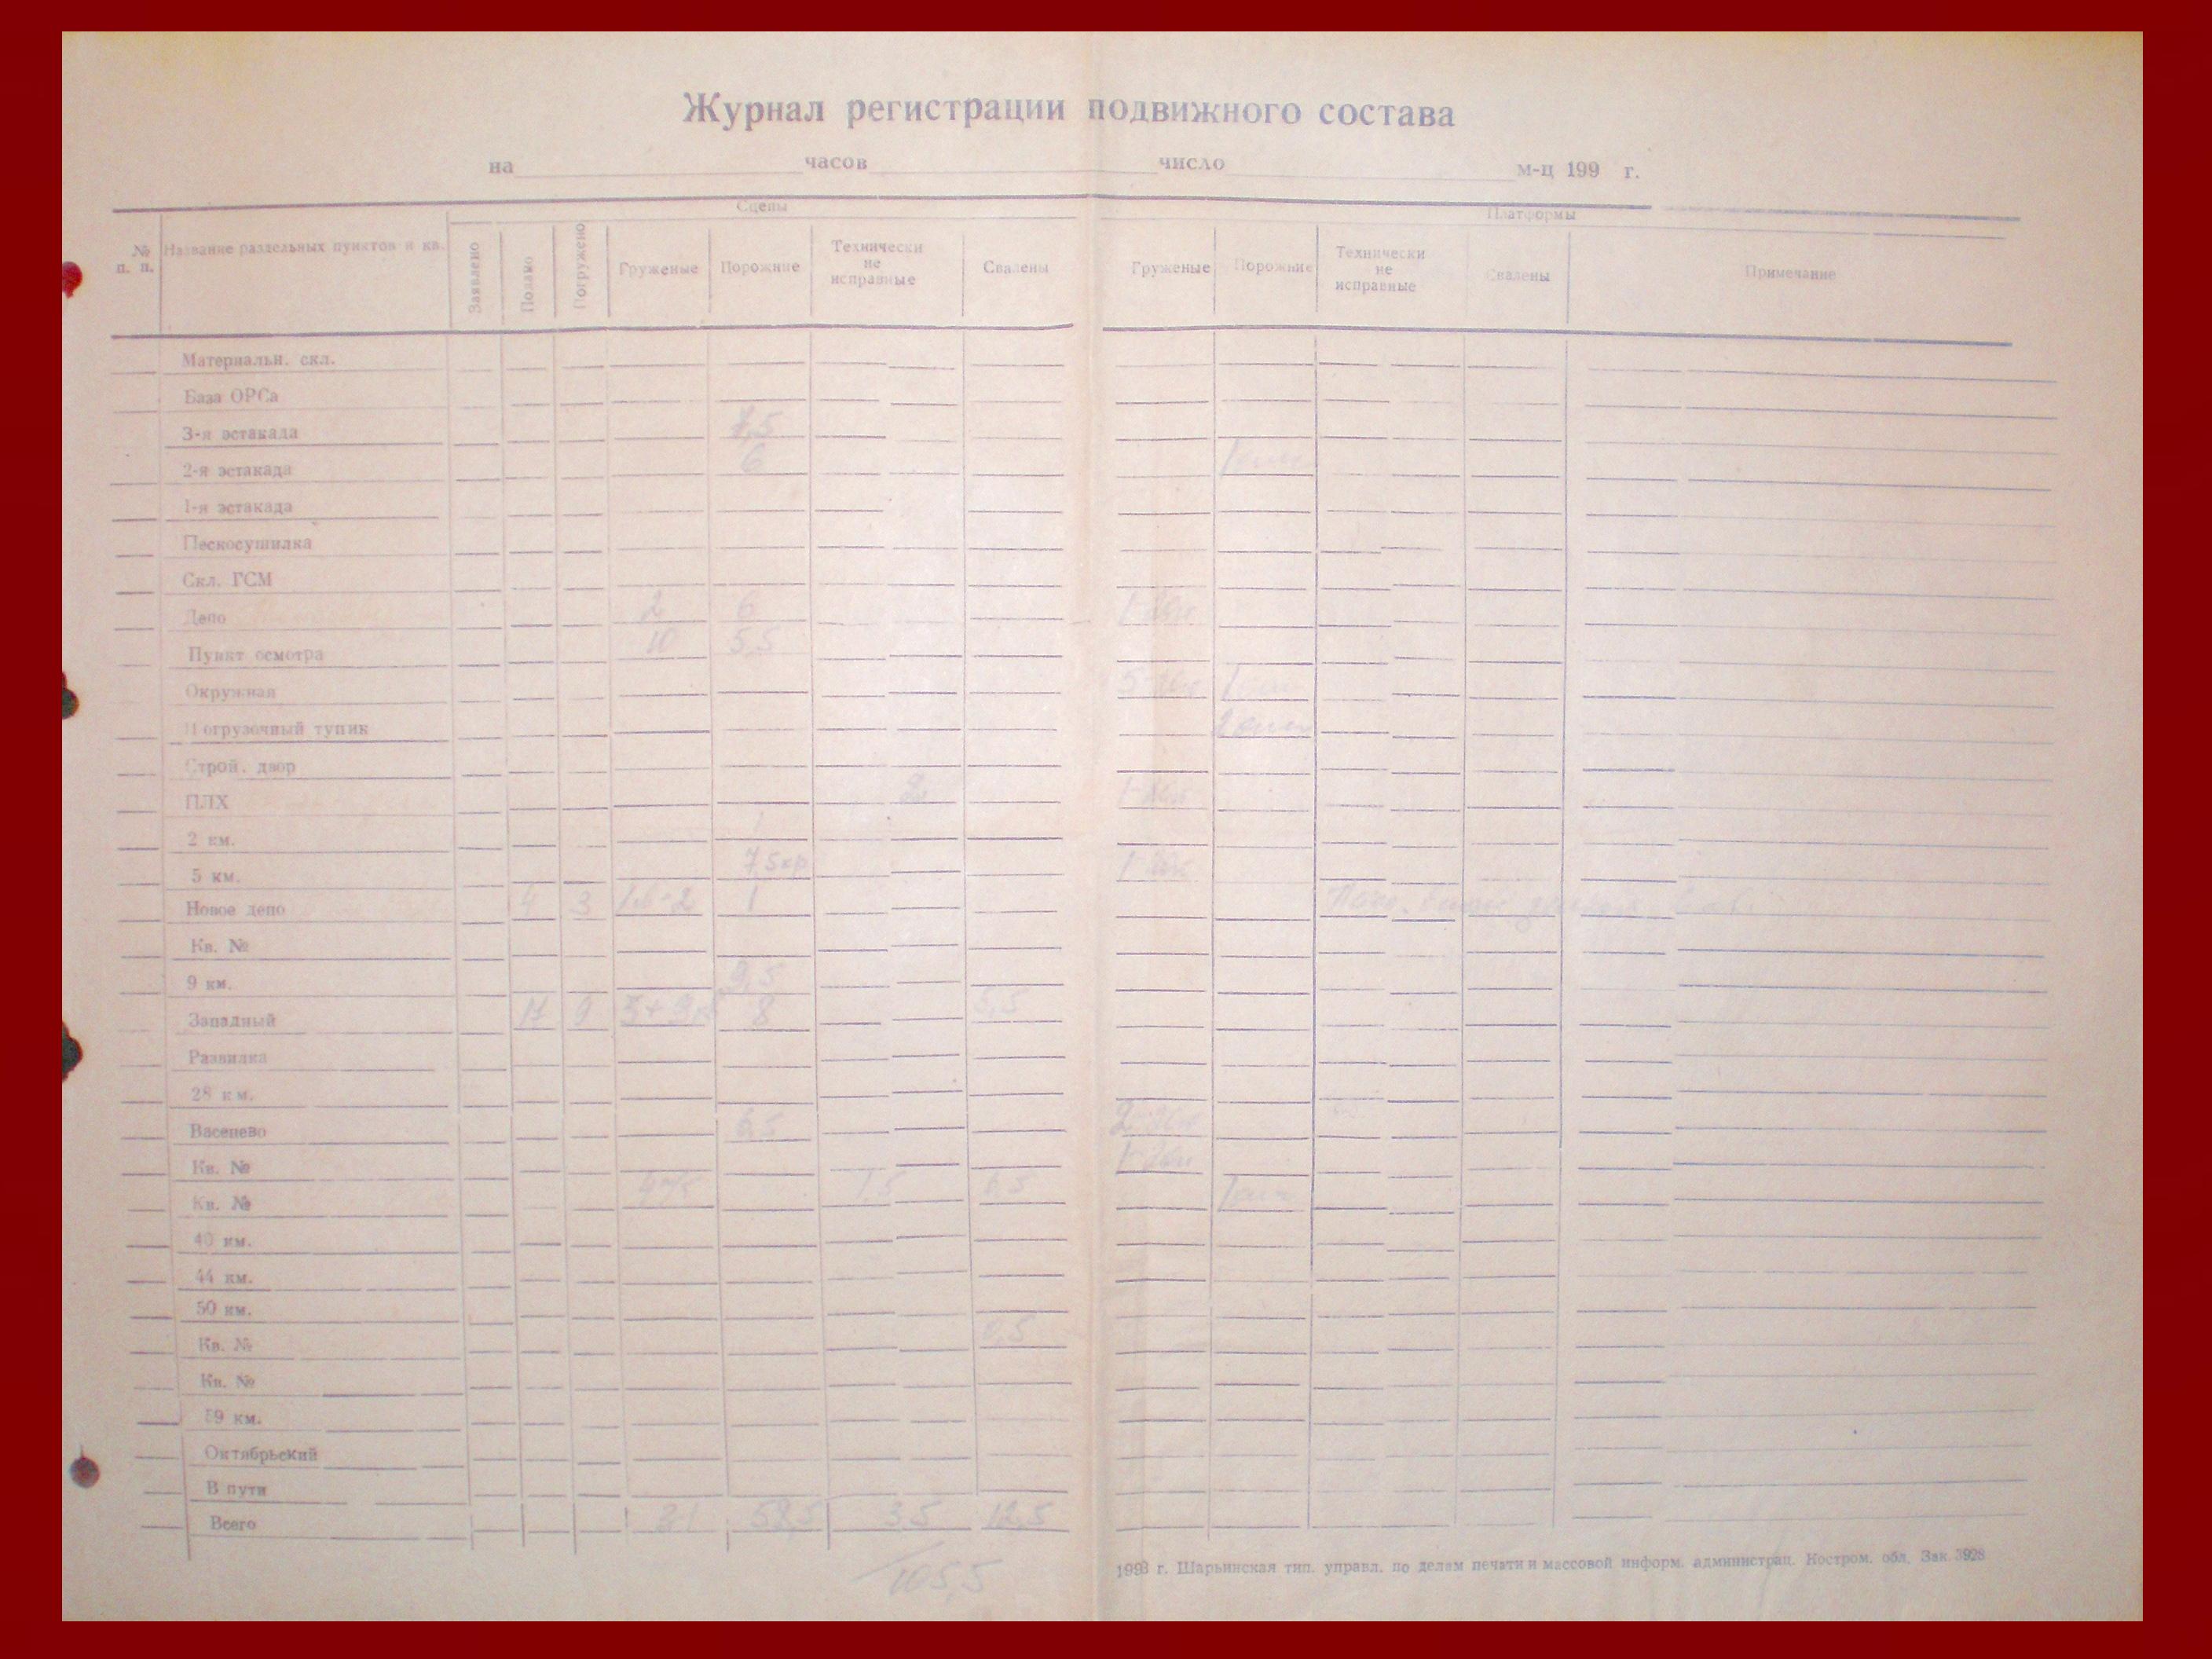 Журнал регистрации подвижного состава
на часов число м-ц 199 г.
Сцепы Платформы
№ п. п. Название раздельных пунктов и кв. Заявлено Подано Погружено Груженые Порожние Технически не исправные Свалены Груженые Порожние Технически не исправные Свалены Примечание
Материальн. скл.
База ОРСа
3-я эстакада 7,5
2-я эстакада 6
1-я эстакада
Пескосушилка
Скл. ГСМ
Депо 2 6
Пункт осмотра 10 5,5
Окружная
Погрузочный тупик
Строй. двор
ПЛХ 2
2 км.
5 км.
Новое депо 4 3 1
Кв. №
9 км. 9,5
Западный 17 9 8 5,5
Развилка
28 км.
Васенево 6,5
Кв. №
Кв. № 1,5 6,5
40 км.
44 км.
50 км.
Кв. № 0,5
Кв. №
59 км.
Октябрьский
В пути
Всего 31 58,5 3,5 12,5
105,5
1993 г. Шарьинская тип. управл. по делам печати и массовой информ. администрац. Костром. обл. Зак. 3928